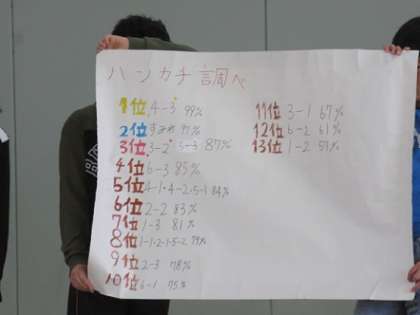 ハンカチ調べ
1位 4-3 99%
2位 97%
3位 3-2 5-3 87%
4位 6-3 85%
5位 4-1・4-2・5-1 84%
6位 2-2 83%
7位 1-3 81%
8位 1-1・2-1・5-2 79%
9位 2-3 78%
10位 6-1 75%
11位 3-1 67%
12位 6-2 61%
13位 1-2